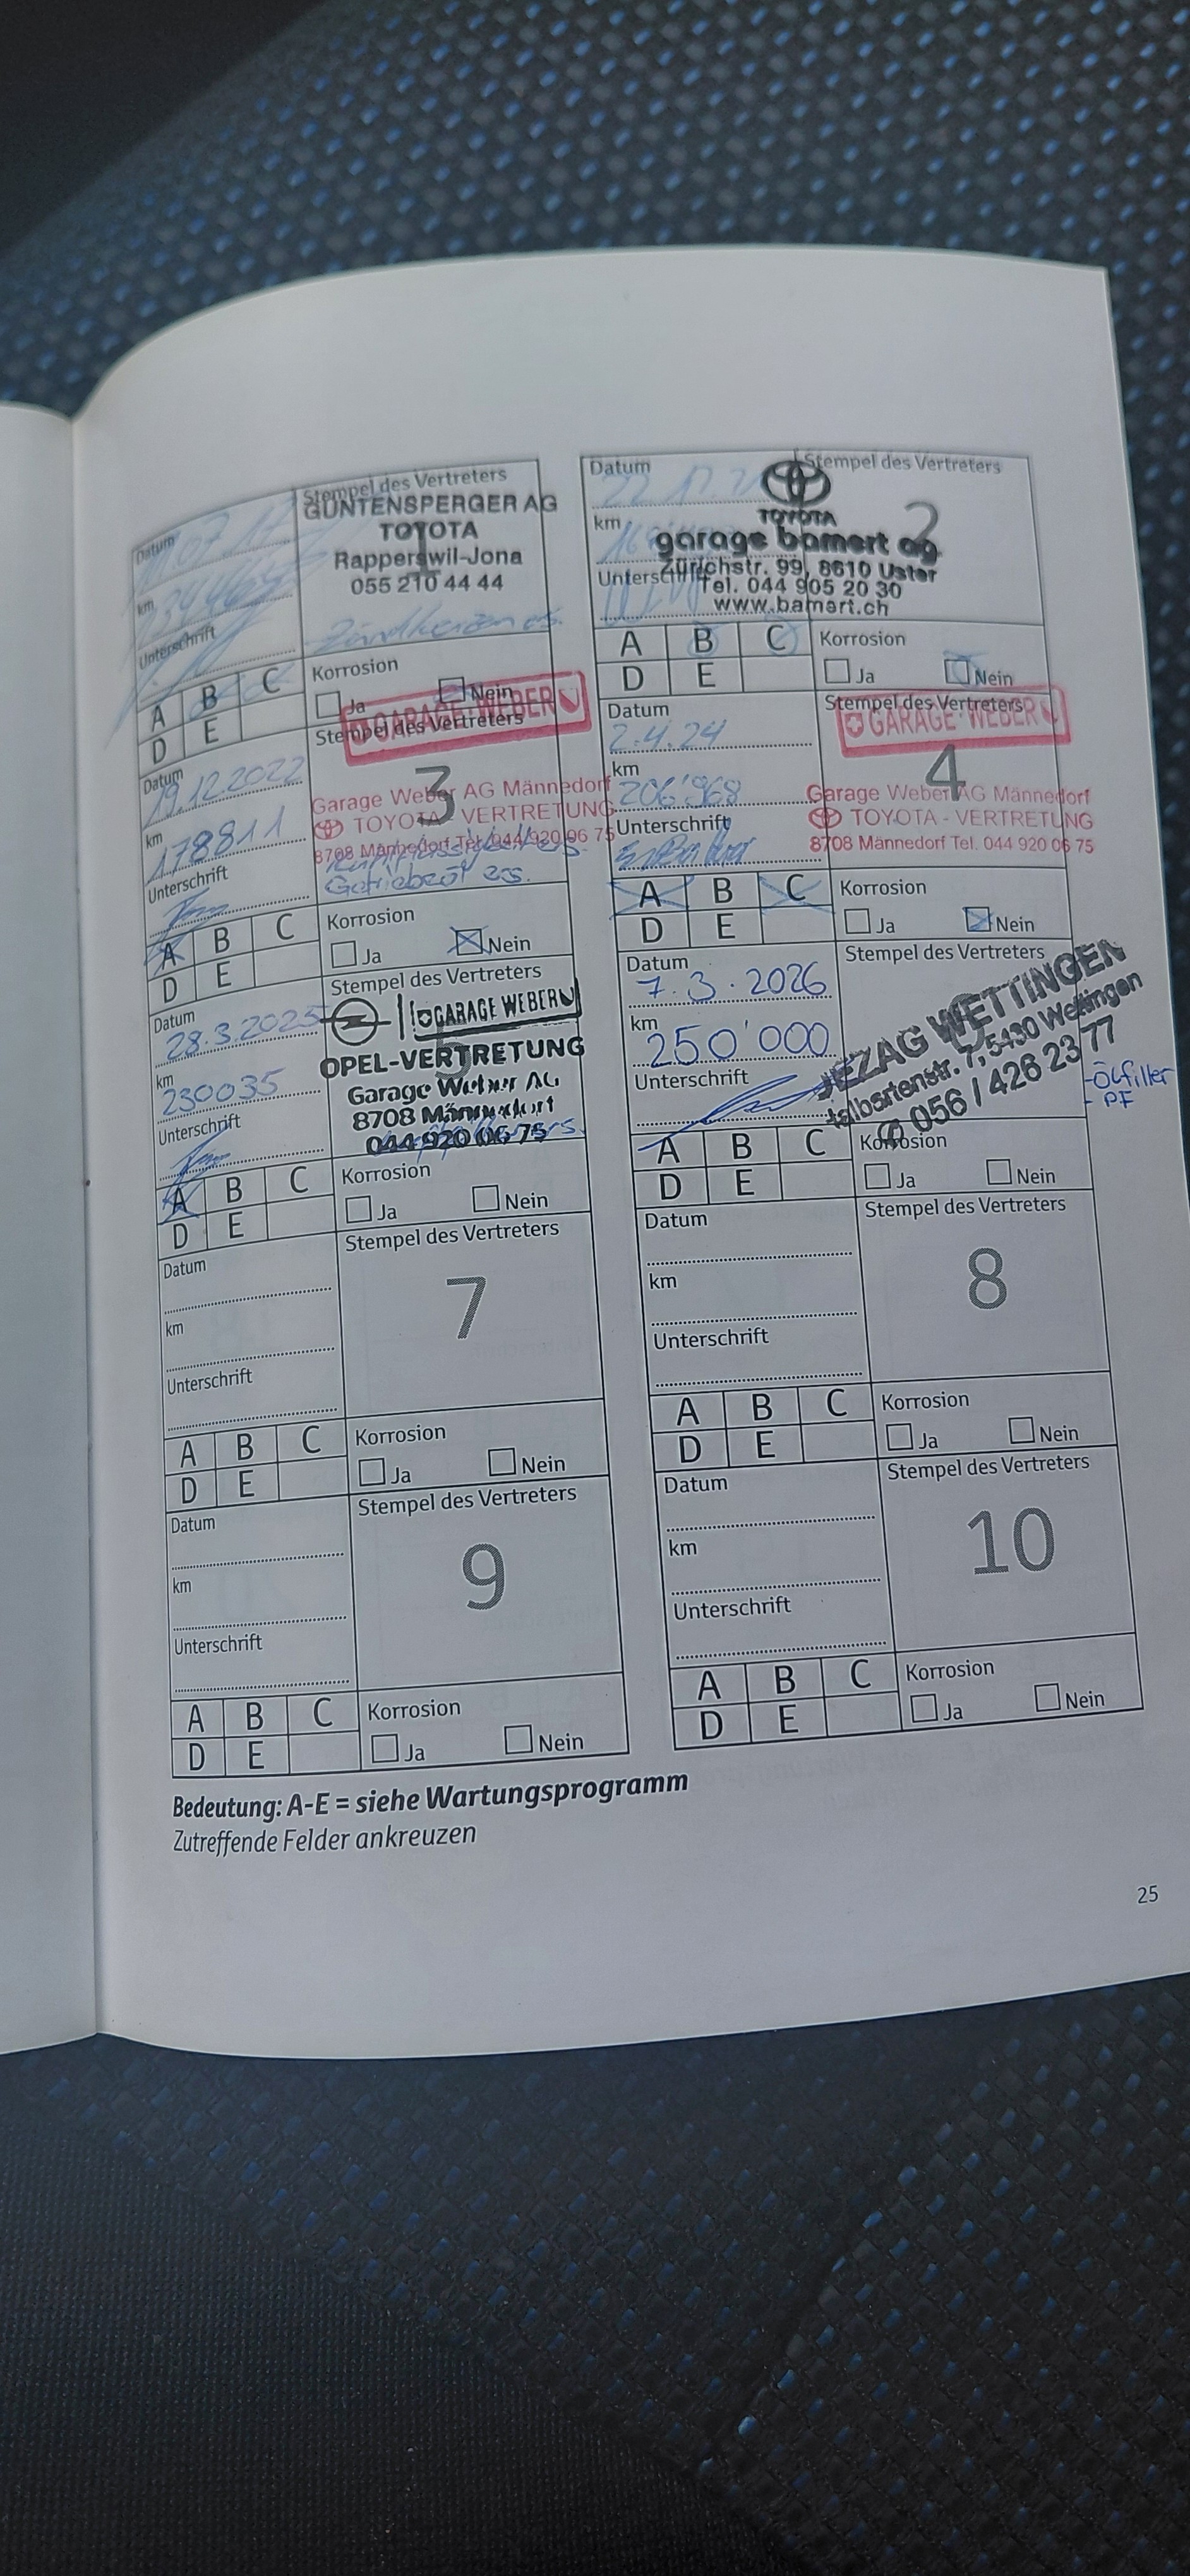 Datum
km
Unterschrift
Stempel des Vertreters
GÜNTENSPERGER AG
TOYOTA
Rapperswil-Jona
055 210 44 44
Zündkerzen es.
A B C
D E
Korrosion
Ja Nein
Datum
km
Unterschrift
Stempel des Vertreters
2
TOYOTA
garage bamert ag
Zürichstr. 99, 8610 Uster
Tel. 044 905 20 30
www.bamert.ch
A B C
D E
Korrosion
Ja Nein
Datum
19.12.2022
km
178811
Unterschrift
Stempel des Vertreters
GARAGE WEBER
3
Garage Weber AG Männedorf
TOYOTA - VERTRETUNG
8708 Männedorf Tel. 044 920 06 75
Getriebeöl ers.
A B C
D E
Korrosion
Ja Nein
Datum
2.4.24
km
206'968
Unterschrift
Stempel des Vertreters
GARAGE WEBER
4
Garage Weber AG Männedorf
TOYOTA - VERTRETUNG
8708 Männedorf Tel. 044 920 06 75
A B C
D E
Korrosion
Ja Nein
Datum
28.3.2025
km
230035
Unterschrift
Stempel des Vertreters
GARAGE WEBER
5
OPEL-VERTRETUNG
Garage Weber AG
8708 Männedorf
044 920 06 75
A B C
D E
Korrosion
Ja Nein
Datum
7.3.2026
km
250'000
Unterschrift
Stempel des Vertreters
JEZAG WETTINGEN
7, 5430 Wettingen
056 / 426 23 77
-Ölfilter
- PF
A B C
D E
Korrosion
Ja Nein
Datum
km
Unterschrift
Stempel des Vertreters
7
A B C
D E
Korrosion
Ja Nein
Datum
km
Unterschrift
Stempel des Vertreters
8
A B C
D E
Korrosion
Ja Nein
Datum
km
Unterschrift
Stempel des Vertreters
9
A B C
D E
Korrosion
Ja Nein
Datum
km
Unterschrift
Stempel des Vertreters
10
A B C
D E
Korrosion
Ja Nein
Bedeutung: A-E = siehe Wartungsprogramm
Zutreffende Felder ankreuzen
25